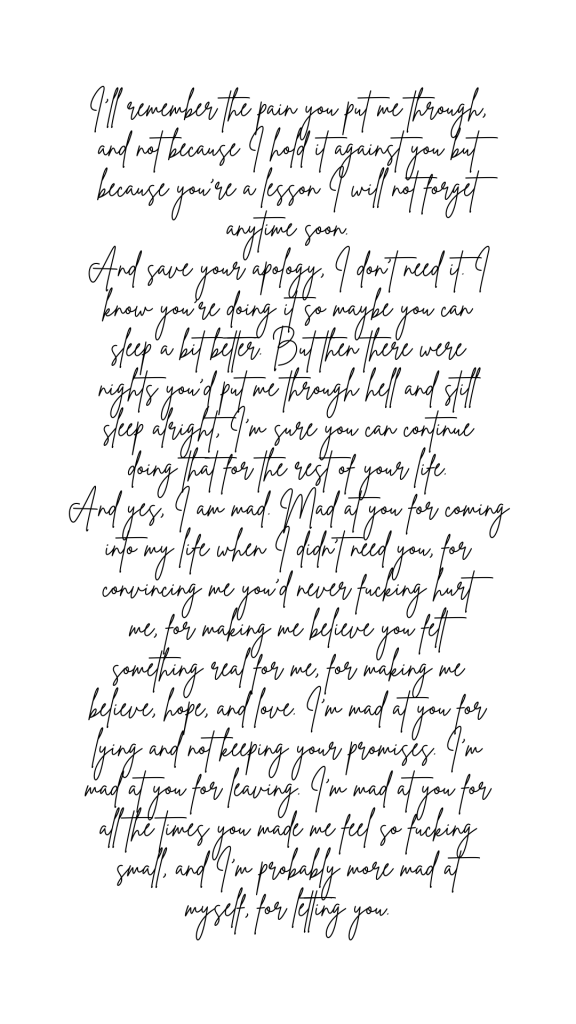 I'll remember the pain you put me through,
and not because I hold it against you but
because you're a lesson I will not forget
anytime soon.
And save your apology, I don't need it. I
know you're doing it so maybe you can
sleep a bit better. But then there were
nights you'd put me through hell and still
sleep alright, I'm sure you can continue
doing that for the rest of your life.
And yes, I am mad. Mad at you for coming
into my life when I didn't need you, for
convincing me you'd never fucking hurt
me, for making me believe you felt
something real for me, for making me
believe, hope, and love. I'm mad at you for
lying and not keeping your promises. I'm
mad at you for leaving. I'm mad at you for
all the times you made me feel so fucking
small, and I'm probably more mad at
myself, for letting you.